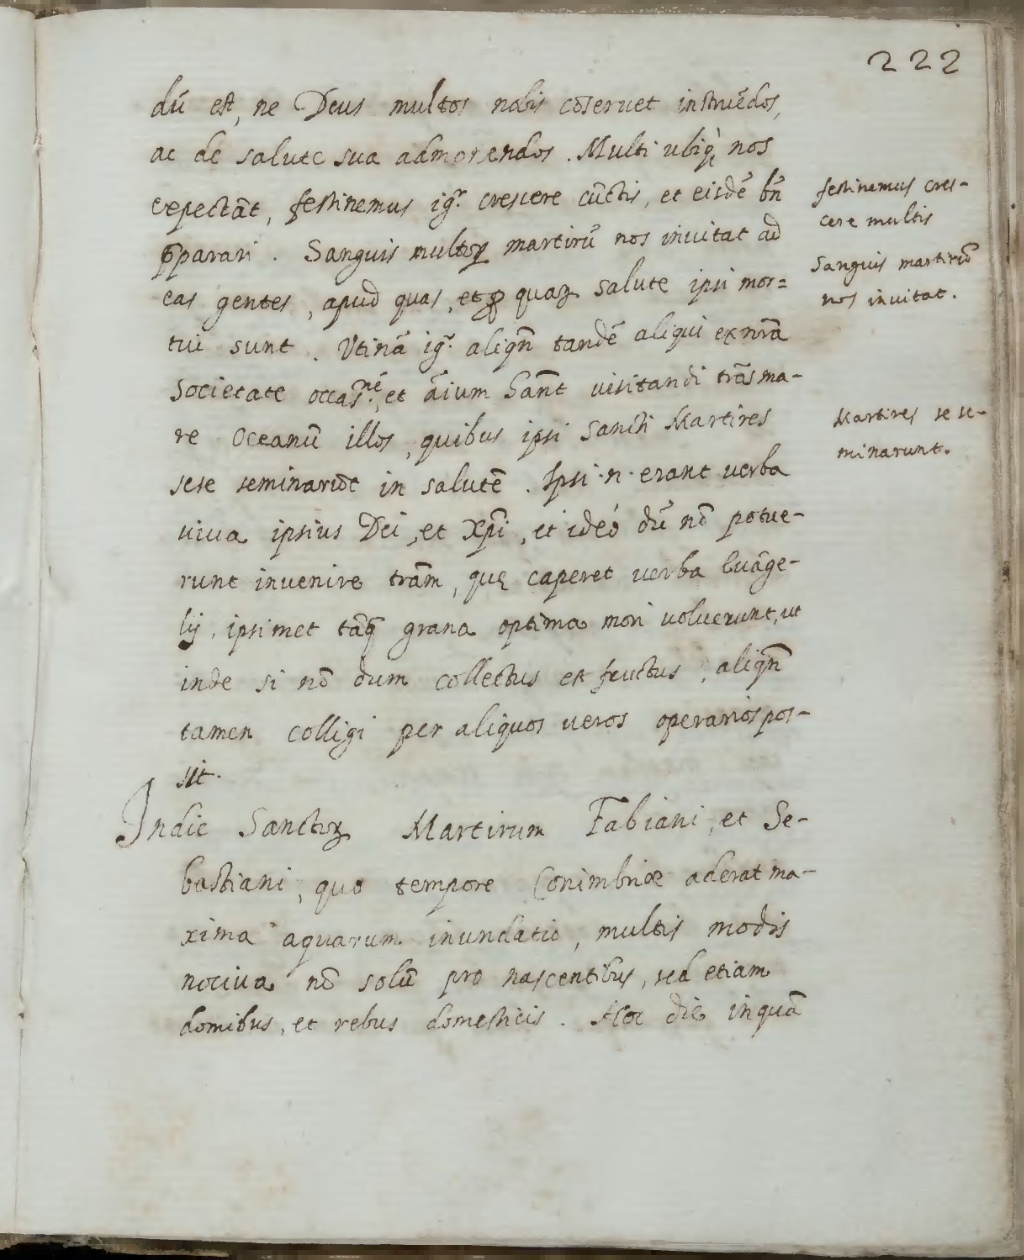 222
dū est, ne Deus multos nobis cōseruet instruēdos,
ac de salute sua admonendos. Multi ubiq́ nos
expectāt, festinemus igr. crescere cūctis, et eisdē bñ
p̄parari. Sanguis multoꝝ martirū nos inuitat ad
eas gentes, apud quas, et ꝓ quaꝝ salute ipsi mor=
tui sunt. Vtinā igr. aliqñ tandē aliqui ex nrā
Societate occasnē, et āium hañt uisitandi trās ma-
re Oceanū illos, quibus ipsi Sancti Martires
sese seminarūt in salutē. Ipsi .n. erant uerba
uiua ipsius Dei, et Xp̄i, et ideó dū nō potue-
runt inuenire trām, quę caperet uerba Euāge-
lij, ipsimet tāq̄ grana optima mori uoluerunt, ut
inde si nō dum collectus est fructus, aliqñ
tamen colligi per aliquos ueros operarios pos-
sit.
In die Sanctoꝝ Martirum Fabiani, et Se-
bastiani, quo tempore Conimbricæ aderat ma-
xima aquarum inundatio, multis modis
nociua nō solū pro nascentibus, sed etiam
domibus, et rebus domesticis. Hoc die inquā
festinemus cres-
cere multis
Sanguis martirū
nos inuitat.
Martires se se-
minarunt.